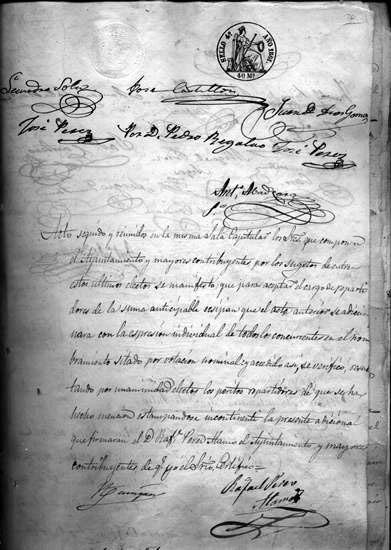 SELLO 4º AÑO 1861.
40 Ms.
Jose Castillon
José Perez Por D. Pedro Regalao José Perez
Acto seguido y reunidos en la misma Sala Capitular los Sres. que componen
el Ayuntamiento y mayores contribuyentes por los sugetos de entre
estos ultimos electos se manifestó que para aceptar el cargo de reparti
dores de la suma anticipable exijian que el acta anterior se adicio
nara con la espresion individual de todos los concurrentes en el nom
bramiento sitado por votacion nominal y accedido asi se verifico, resul
tando por unanimidad electos los peritos repartidores de que se ha
hecho mencion estampandose incontinente la presente adiciona
que firmaran el D. Rafl. Perez Alamo el Ayuntamiento y mayores
contribuyentes de q. yo el Srio. Certifico =
Rafael Perez
Alamo